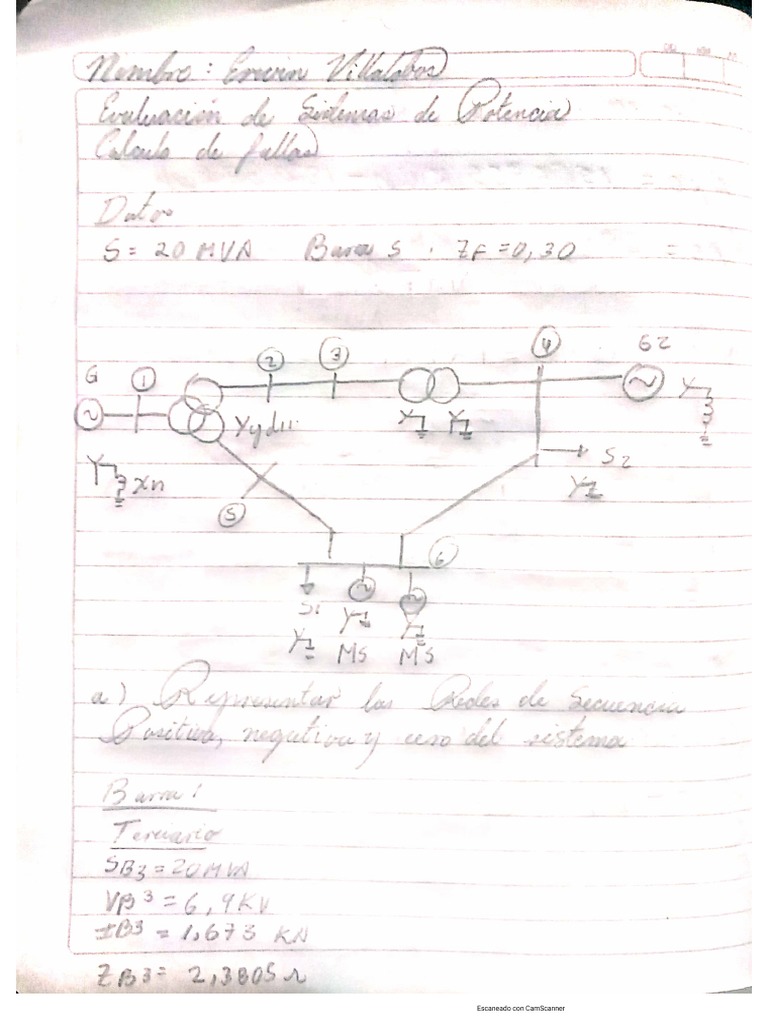 Nombre: Erwin Villalobos
Evaluación de Sistemas de Potencia
Calculo de fallas
Datos
S = 20 MVA Barra 5 . ZF = 0,30
4
G2
3
2
G
1
Yyd11
Xn
S2
5
6
S1
MS MS
a) Representar las Redes de Secuencia
Positiva, negativa y cero del sistema
Barra 1
Terciario
SB3 = 20 MVA
VB3 = 6,9 KV
IB3 = 1,673 KA
ZB3 = 2,3805 Ω
Escaneado con CamScanner